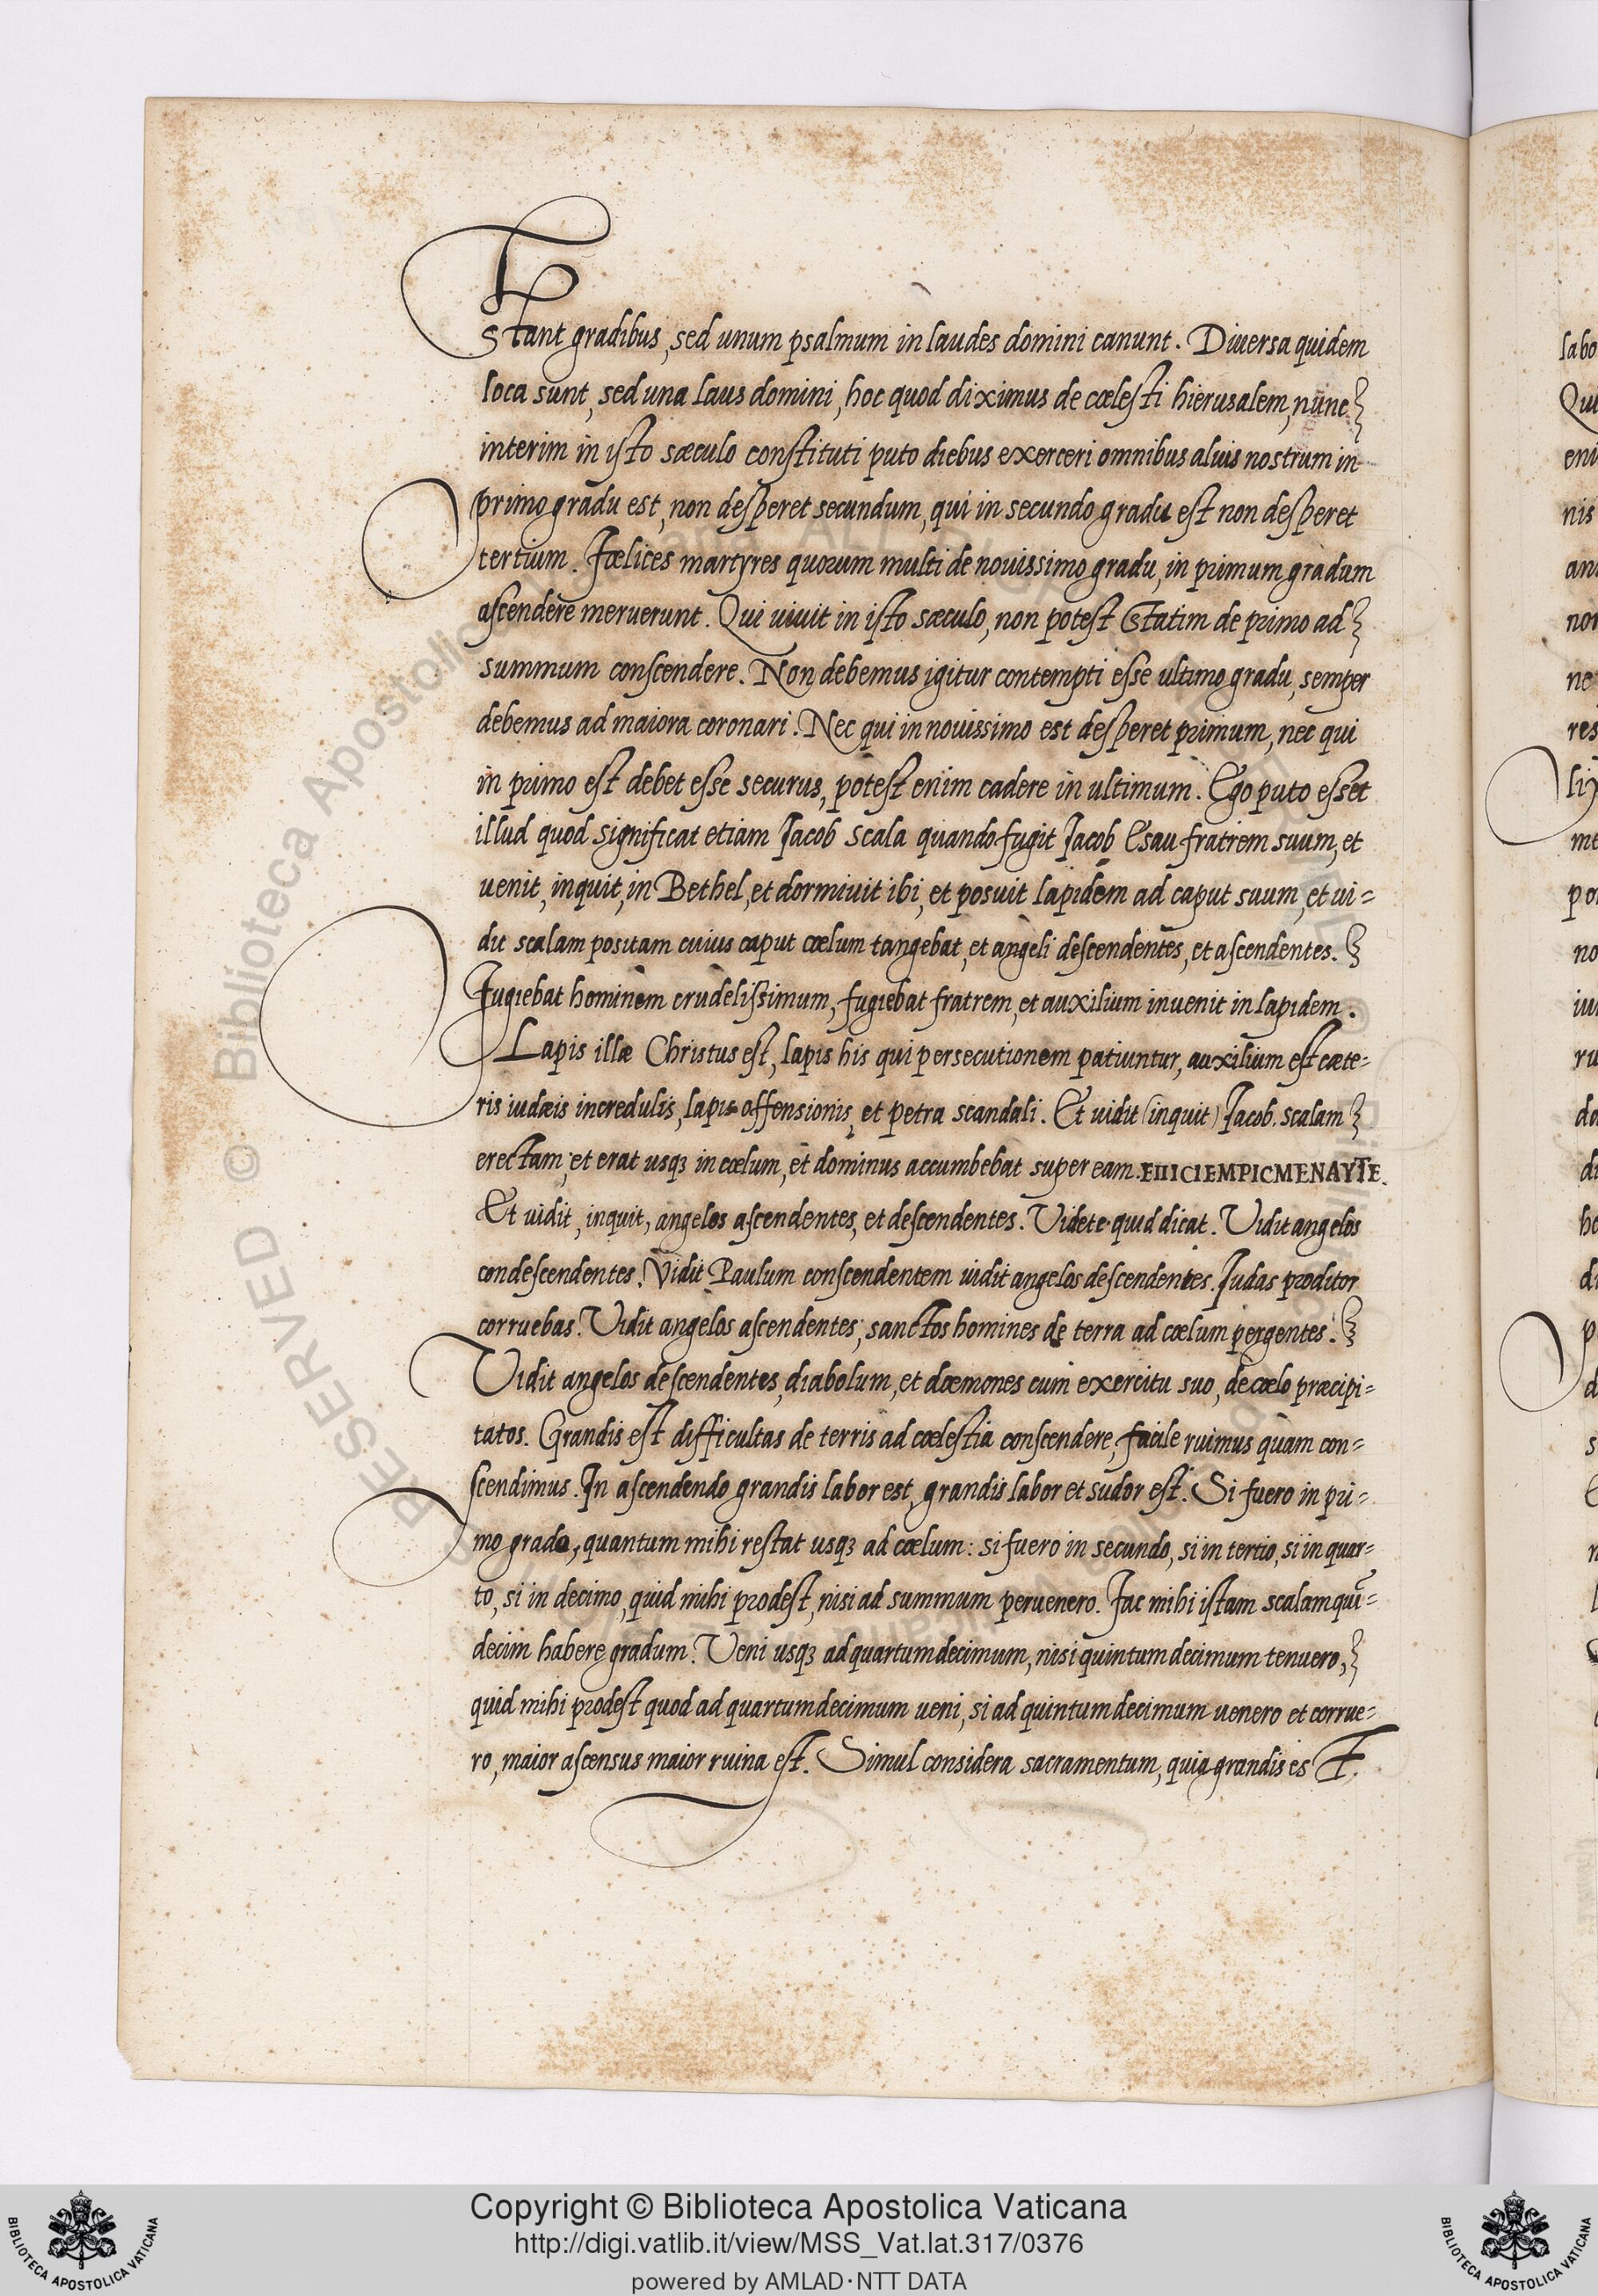 Stant gradibus, sed unum psalmum in laudes domini canunt. Diuersa quidem
loca sunt, sed una laus domini, hoc quod diximus de cœlesti hierusalem, nunc
interim in isto sæculo constituti puto diebus exerceri omnibus aluis nostrum in
primo gradu est, non desperet secundum, qui in secundo gradu est non desperet
tertium. Fœlices martyres quorum multi de nouissimo gradu, in primum gradum
ascendere meruerunt. Qui uiuit in isto sæculo, non potest statim de primo ad
summum conscendere. Non debemus igitur contempti esse ultimo gradu, semper
debemus ad maiora coronari. Nec qui in nouissimo est desperet primum, nec qui
in primo est debet esse securus, potest enim cadere in ultimum. Ego puto esset
illud quod significat etiam Jacob scala quando fugit Jacob Esau fratrem suum, et
uenit, inquit, in Bethel, et dormiuit ibi, et posuit lapidem ad caput suum, et ui=
dit scalam positam cuius caput cœlum tangebat, et angeli descendentes, et ascendentes.
Fugiebat hominem crudelissimum, fugiebat fratrem, et auxilium inuenit in lapidem.
Lapis illæ Christus est, lapis his qui persecutionem patiuntur, auxilium est cæte=
ris iudæis incredulis, lapis offensionis, et petra scandali. Et uidit (inquit) Jacob. scalam
erectam, et erat usq3 in cœlum, et dominus accumbebat super eam. EIIICIEMPICMENAYTE.
Et uidit, inquit, angelos ascendentes, et descendentes. Videte quid dicat. Vidit angelos
condescendentes. Vidit Paulum conscendentem uidit angelos descendentes. Judas proditor
corruebas. Vidit angelos ascendentes, sanctos homines de terra ad cœlum pergentes.
Vidit angelos descendentes, diabolum, et dœmones cum exercitu suo, de cœlo præcipi=
tatos. Grandis est difficultas de terris ad cœlestia conscendere, facile ruimus quam con=
scendimus. In ascendendo grandis labor est, grandis labor et sudor est. Si fuero in pri=
mo grado, quantum mihi restat usq3 ad cœlum: si fuero in secundo, si in tertio, si in quar=
to, si in decimo, quid mihi prodest, nisi ad summum peruenero. Fac mihi istam scalam quī=
decim habere gradum. Veni usq3 ad quartum decimum, nisi quintum decimum tenuero,
quid mihi prodest quod ad quartum decimum ueni, si ad quintum decimum uenero et corrue=
ro, maior ascensus maior ruina est. Simul considera sacramentum, quia grandis est.
labo
Qui
eni
nis
non
ne
res
me
no
ru
di
Copyright © Biblioteca Apostolica Vaticana
http://digi.vatlib.it/view/MSS_Vat.lat.317/0376
powered by AMLAD·NTT DATA
BIBLIOTECA APOSTOLICA VATICANA
BIBLIOTECA APOSTOLICA VATICANA